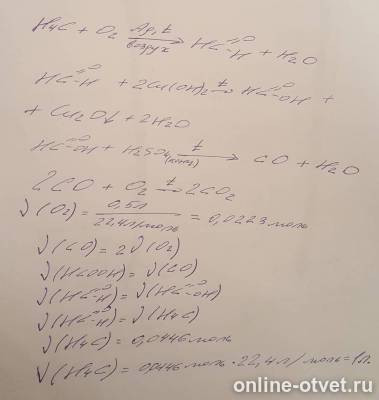 H₄C + O₂ Ag, t воздух → HC=O–H + H₂O
HC=O–H + 2Cu(OH)₂ t→ HC=O–OH +
+ Cu₂O↓ + 2H₂O
HC=O–OH + H₂SO₄ (конц) t→ CO + H₂O
2CO + O₂ t→ 2CO₂
√(O₂) = 0,5л / 22,4л/моль = 0,0223моль
√(CO) = 2√(O₂)
√(HCOOH) = √(CO)
√(HC=O–H) = √(HC=O–OH)
√(HC=O–H) = √(H₄C)
√(H₄C) = 0,0446моль
V(H₄C) = 0,0446моль · 22,4л/моль = 1л.
online-otvet.ru